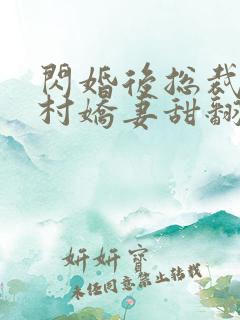 閃婚後总裁
村嬌妻甜翻
妍妍寶
未經同意禁止转载